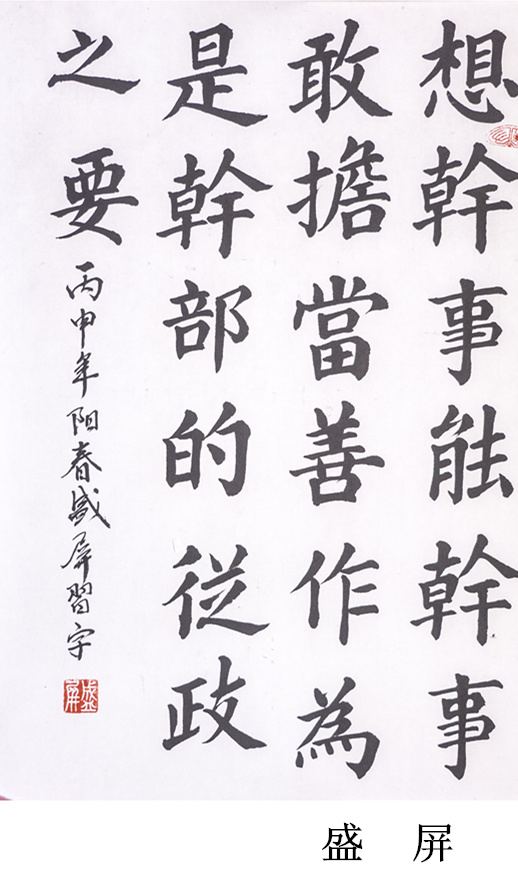 想幹事能幹事
敢擔當善作為
是幹部的從政
之要
丙申年阳春盛屏習字
盛屏
盛 屏